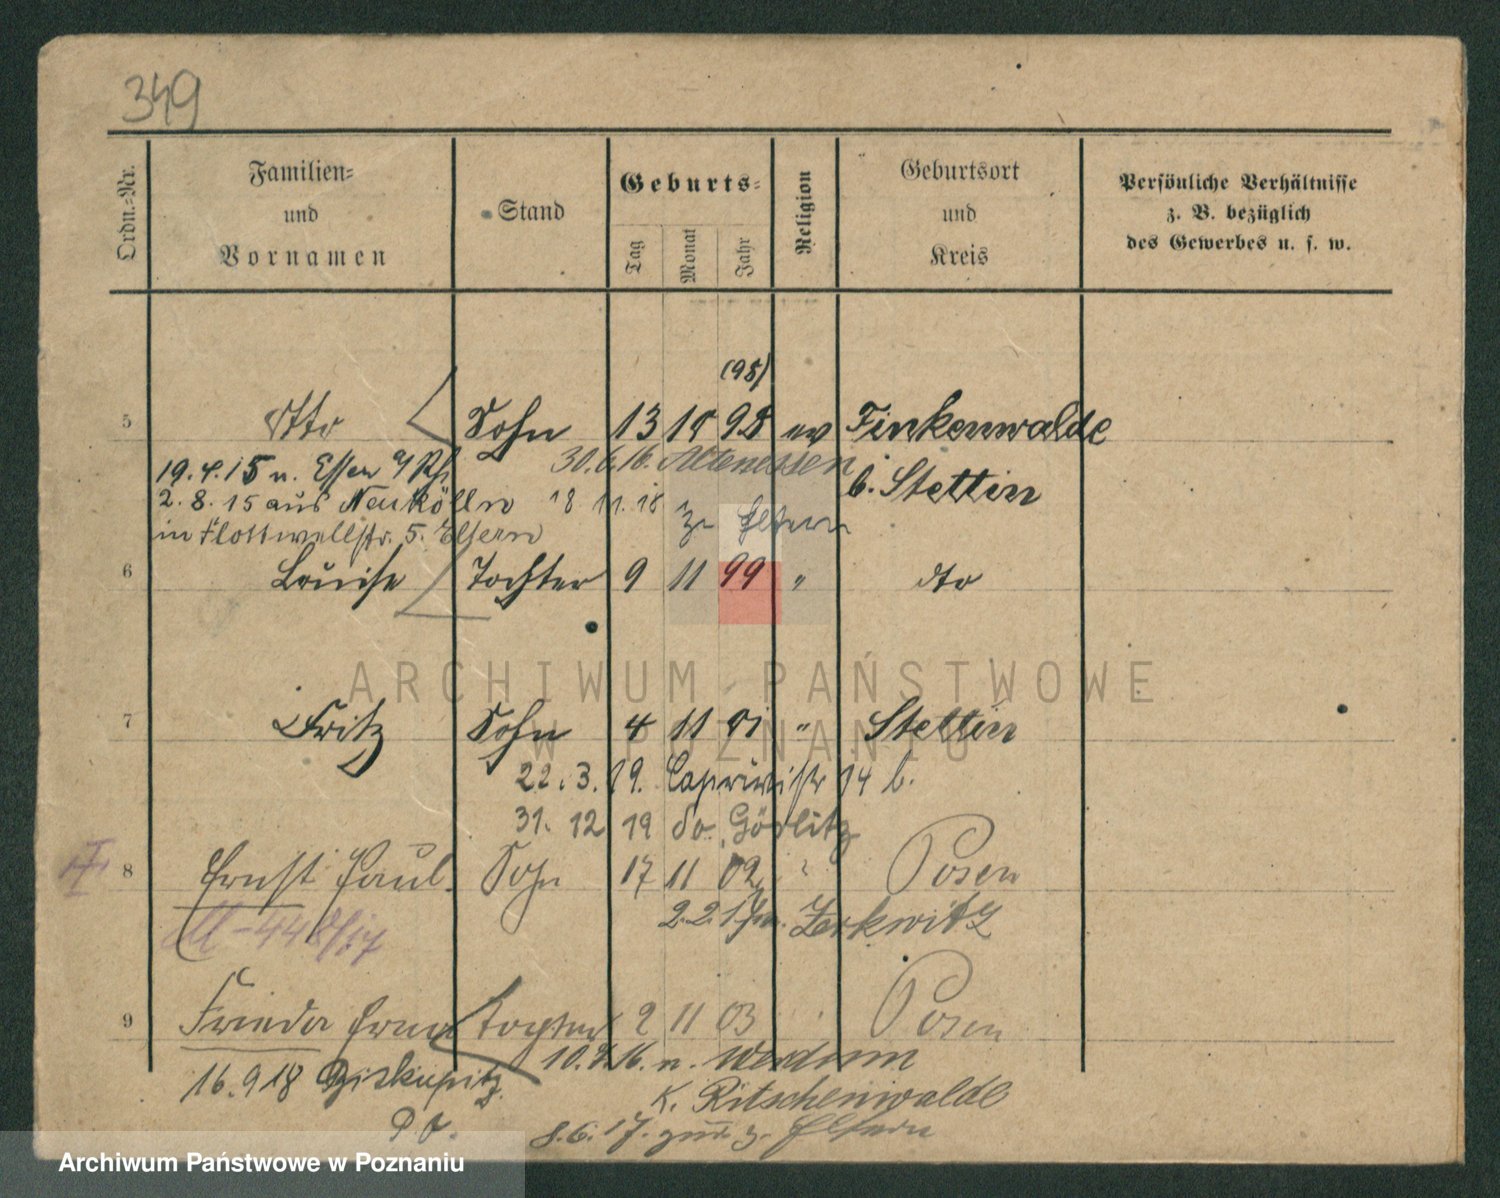 349
Ordn.-Nr.
Familien-
und
Vornamen
Stand
Geburts-
Tag
Monat
Jahr
Religion
Geburtsort
und
Kreis
Persönliche Verhältnisse
z. B. bezüglich
des Gewerbes u. s. w.
(98)
5 Otto Sohn 13 98 ev Finkenwalde
19.4.15 n. Essen a/Rh. 30.6.16. Altenessen b. Stettin
2.8.15 aus Neukölln 18 11.18 zu Eltern
in Flottwellstr. 5. Eltern
6 Louise Tochter 9 11 99 " dto
ARCHIWUM PAŃSTWOWE
W POZNANIU
7 Fritz Sohn 4 11 01 " Stettin
22.3.19. Caprivistr 14 b.
31. 12 19 do Görlitz
8 Ernst Paul. Sohn 17 11 02 " Posen
2.2.17 n. Zerkwitz
9 Frieda Erna Tochter 2 11 03 Posen
10. 16. n. Werdum
16.9.18
K. Ritschenwalde
8.6.17. zur. z. Eltern
Archiwum Państwowe w Poznaniu